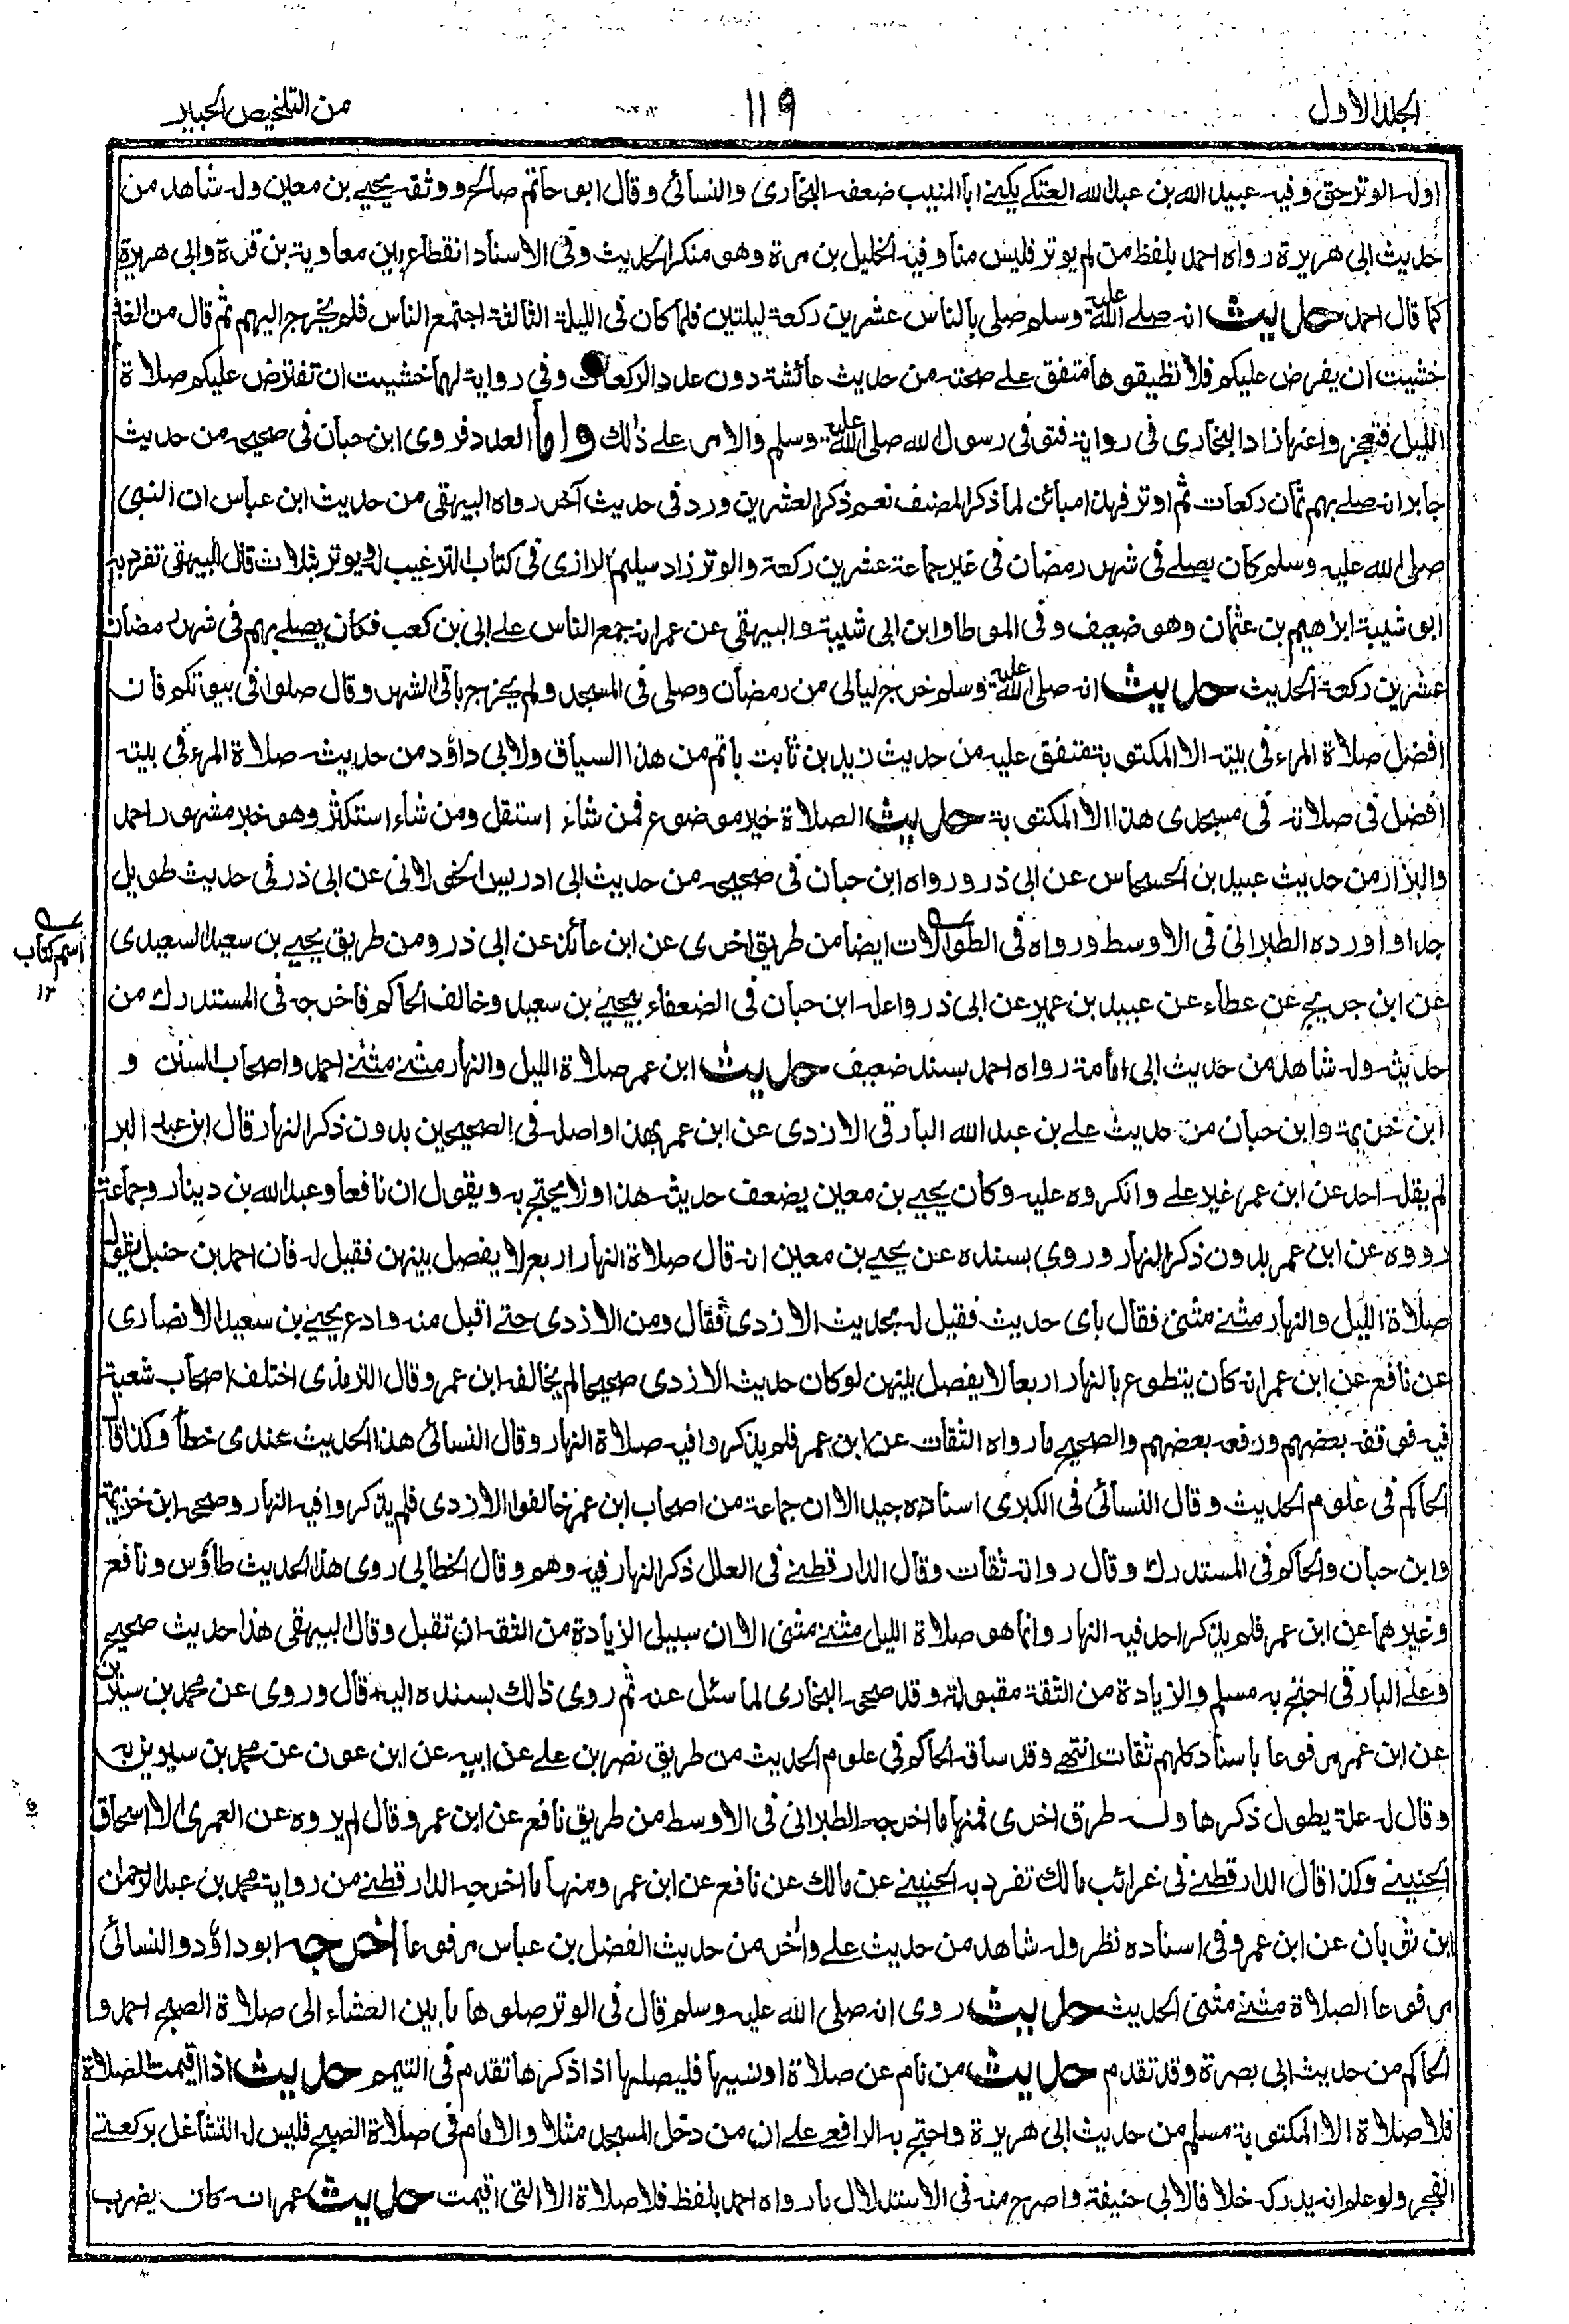 الجلد الاول
١١٩
من التلخيص الحبير
اوله الوتر حق وفيه عبيد الله بن عبد الله العتكے يكنے ابا المنيب ضعفه البخارى والنسائى وقال ابو حاتم صالح ووثقه يحيے بن معين وله شاهد من
حديث ابى هريرة رواه احمد بلفظ من لم يوتر فليس منا وفيه الخليل بن مرة وهو منكر الحديث وفى الاسناد انقطاع بين معاوية بن قرة وابى هريرة
كما قال احمد حديث انه صلے الله عليه وسلم صلى بالناس عشرين ركعة ليلتين فلما كان فى الليلة الثالثة اجتمع الناس فلم يخرج اليهم ثم قال من الغد
خشيت ان يفرض عليكم فلا تطيقوها متفق علے صحته من حديث عائشة دون عدد الركعات وفى رواية لهما خشيت ان تفترض عليكم صلاة
الليل فتعجزوا عنها زاد البخارى فى رواية فتوفى رسول الله صلى الله عليه وسلم والامر علے ذلك واما العدد فروى ابن حبان فى صحيحه من حديث
جابر انه صلے بهم ثمان ركعات ثم اوتر فهذا مبائن لما ذكر المصنف نعم ذكر العشرين ورد فى حديث آخر رواه البيهقى من حديث ابن عباس ان النبى
صلى الله عليه وسلم كان يصلے فى شهر رمضان فى غير جماعة عشرين ركعة والوتر زاد سليم الرازى فى كتاب الترغيب له ويوتر بثلاث قال البيهقى تفرد به
ابو شيبة ابراهيم بن عثمان وهو ضعيف وفى الموطا وابن ابى شيبة والبيهقى عن عمر انه جمع الناس علے ابى بن كعب فكان يصلے بهم فى شهر رمضان
عشرين ركعة الحديث حديث انه صلى الله عليه وسلم خرج ليالى من رمضان وصلى فى المسجد ولم يخرج باقى الشهر وقال صلوا فى بيوتكم فان
افضل صلاة المرء فى بيته الا المكتوبة متفق عليه من حديث زيد بن ثابت باتم من هذا السياق ولابى داؤد من حديثه صلاة المرء فى بيته
افضل فى صلاته فى مسجدى هذا الا المكتوبة حديث الصلاة خير موضوع فمن شاء استقل ومن شاء استكثر وهو خبر مشهور احمد
والبزار من حديث عبيد بن الحسحاس عن ابى ذر ورواه ابن حبان فى صحيحه من حديث ابى ادريس الخولانى عن ابى ذر فى حديث طويل
جدا واورده الطبرانى فى الاوسط ورواه فى الطوالات ايضا من طريق اخرى عن ابن عائذ عن ابى ذر ومن طريق يحيے بن سعيد السعيدى
اسم كتاب
١٢
عن ابن جريج عن عطاء عن عبيد بن عمير عن ابى ذر واعله ابن حبان فى الضعفاء بيحيے بن سعيد وخالف الحاكم فاخرجه فى المستدرك من
حديثه وله شاهد من حديث ابى امامة رواه احمد بسند ضعيف حديث ابن عمر صلاة الليل والنهار مثنے مثنے احمد واصحاب السنن و
ابن خزيمة وابن حبان من حديث علے بن عبد الله البارقى الازدى عن ابن عمر بهذا واصله فى الصحيحين بدون ذكر النهار قال ابن عبد البر
لم يقله احد عن ابن عمر غير علے وانكروه عليه وكان يحيے بن معين يضعف حديثه هذا ولا يحتج به ويقول ان نافعا وعبد الله بن دينار وجماعة
رووه عن ابن عمر بدون ذكر النهار وروى بسنده عن يحيے بن معين انه قال صلاة النهار اربع لا يفصل بينهن فقيل له فان احمد بن حنبل يقول
صلاة الليل والنهار مثنے مثنى فقال باى حديث فقيل له بحديث الازدى فقال ومن الازدى حتے اقبل منه وادع يحيے بن سعيد الانصارى
عن نافع عن ابن عمر انه كان يتطوع بالنهار اربعا لا يفصل بينهن لو كان حديث الازدى صحيحا لم يخالفه ابن عمر وقال الترمذى اختلف اصحاب شعبة
فيه فوقفه بعضهم ورفعه بعضهم والصحيح ما رواه الثقات عن ابن عمر فلم يذكروا فيه صلاة النهار وقال النسائى هذا الحديث عندى خطأ وكذا قال
الحاكم فى علوم الحديث وقال النسائى فى الكبرى اسناده جيد الا ان جماعة من اصحاب ابن عمر خالفوا الازدى فلم يذكروا فيه النهار وصححه ابن خزيمة
وابن حبان والحاكم فى المستدرك وقال رواته ثقات وقال الدارقطنے فى العلل ذكر النهار فيه وهم وقال الخطابى روى هذا الحديث طاؤس ونافع
وغيرهما عن ابن عمر فلم يذكر احد فيه النهار وانما هو صلاة الليل مثنے مثنى الا ان سبيل الزيادة من الثقة ان تقبل وقال البيهقى هذا حديث صحيح
وعلے البارقى احتج به مسلم والزيادة من الثقة مقبولة وقد صححه البخارى لما سئل عنه ثم روى ذلك بسنده اليه قال وروى عن محمد بن سيرين
عن ابن عمر مرفوعا باسناد كلهم ثقات انتهے وقد ساقه الحاكم فى علوم الحديث من طريق نصر بن علے عن ابيه عن ابن عون عن محمد بن سيرين به
وقال له علة يطول ذكرها وله طرق اخرى فمنها ما اخرجه الطبرانى فى الاوسط من طريق نافع عن ابن عمر وقال لم يروه عن العمرى الا اسحاق
الحنينے وكذا قال الدارقطنے فى غرائب مالك تفرد به الحنينے عن مالك عن نافع عن ابن عمر ومنها ما اخرجه الدارقطنے من رواية محمد بن عبد الرحمان
ابن ثوبان عن ابن عمر وفى اسناده نظر وله شاهد من حديث علے وآخر من حديث الفضل بن عباس مرفوعا اخرجه ابو داؤد والنسائى
مرفوعا الصلاة مثنے مثنى الحديث حديث روى انه صلى الله عليه وسلم قال فى الوتر صلوها ما بين العشاء الى صلاة الصبح احمد و
الحاكم من حديث ابى بصرة وقد تقدم حديث من نام عن صلاة او نسيها فليصلها اذا ذكرها تقدم فى التيمم حديث اذا اقيمت الصلاة
فلا صلاة الا المكتوبة مسلم من حديث ابى هريرة واحتج به الرافعى علے ان من دخل المسجد مثلا والامام فى صلاة الصبح فليس له التشاغل بركعتے
الفجر ولو علم انه يدركه خلافا لابى حنيفة واصرح منه فى الاستدلال ما رواه احمد بلفظ فلا صلاة الا التى اقيمت حديث عمر انه كان يضرب